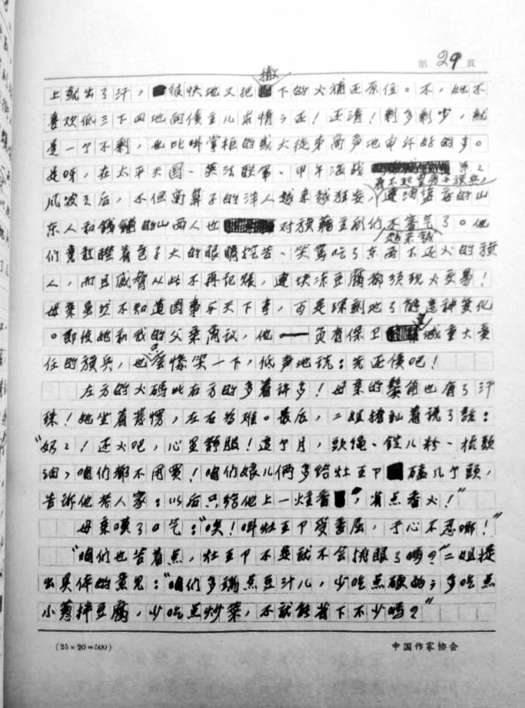 第 29 页
撤
上就出了汗，很快地又把下的钱补还原位。不，她不
喜欢低三下四地向债主儿求情；还！还清！剩多剩少，就
是一个不剩，也比叫掌柜的或大徒弟高声地申斥好的多。
是呀，在太平天国、英法联军、甲午海战等等
看不起皇帝与旗兵，
风波之后，不但高鼻子的洋人越来越狂妄，连油盐店的山
东人和钱铺的山西人也对旗籍主顾们不客气了。他
越来越
们竟敢瞪着包子大的眼睛挖苦、笑骂吃了东西不还钱的旗
人，而且威胁从此不再记账，连块冻豆腐都须现钱交易！
母亲虽然不知道国事与天下事，可是深刻地了解这种变化
。即使她和我的父亲商议，他——负有保卫皇城重大责
任的旗兵，也只会惨笑一下，低声地说：先还债吧！
左方的钱码比右方的多着许多！母亲的鬓角也有了汗
珠！她坐着发愣，左右为难。最后，二姐搭讪着说了话：
“奶奶！还钱吧，心里舒服！这个月，头绳、锭儿粉、梳头
油，咱们都不用买！咱们娘儿俩多给灶王爷磕几个头，
告诉他老人家：以后只给他上一炷香，省点香火！”
母亲叹了口气：“唉！叫灶王爷受委屈，于心不忍哪！”
“咱们也苦着点，灶王爷不是就不会挑眼了吗？”二姐提
出具体的意见：“咱们多端点豆汁儿，少吃点硬的；多吃点
小葱拌豆腐，少吃点炒菜，不就能省下不少吗？”
(25×20=500)
中国作家协会